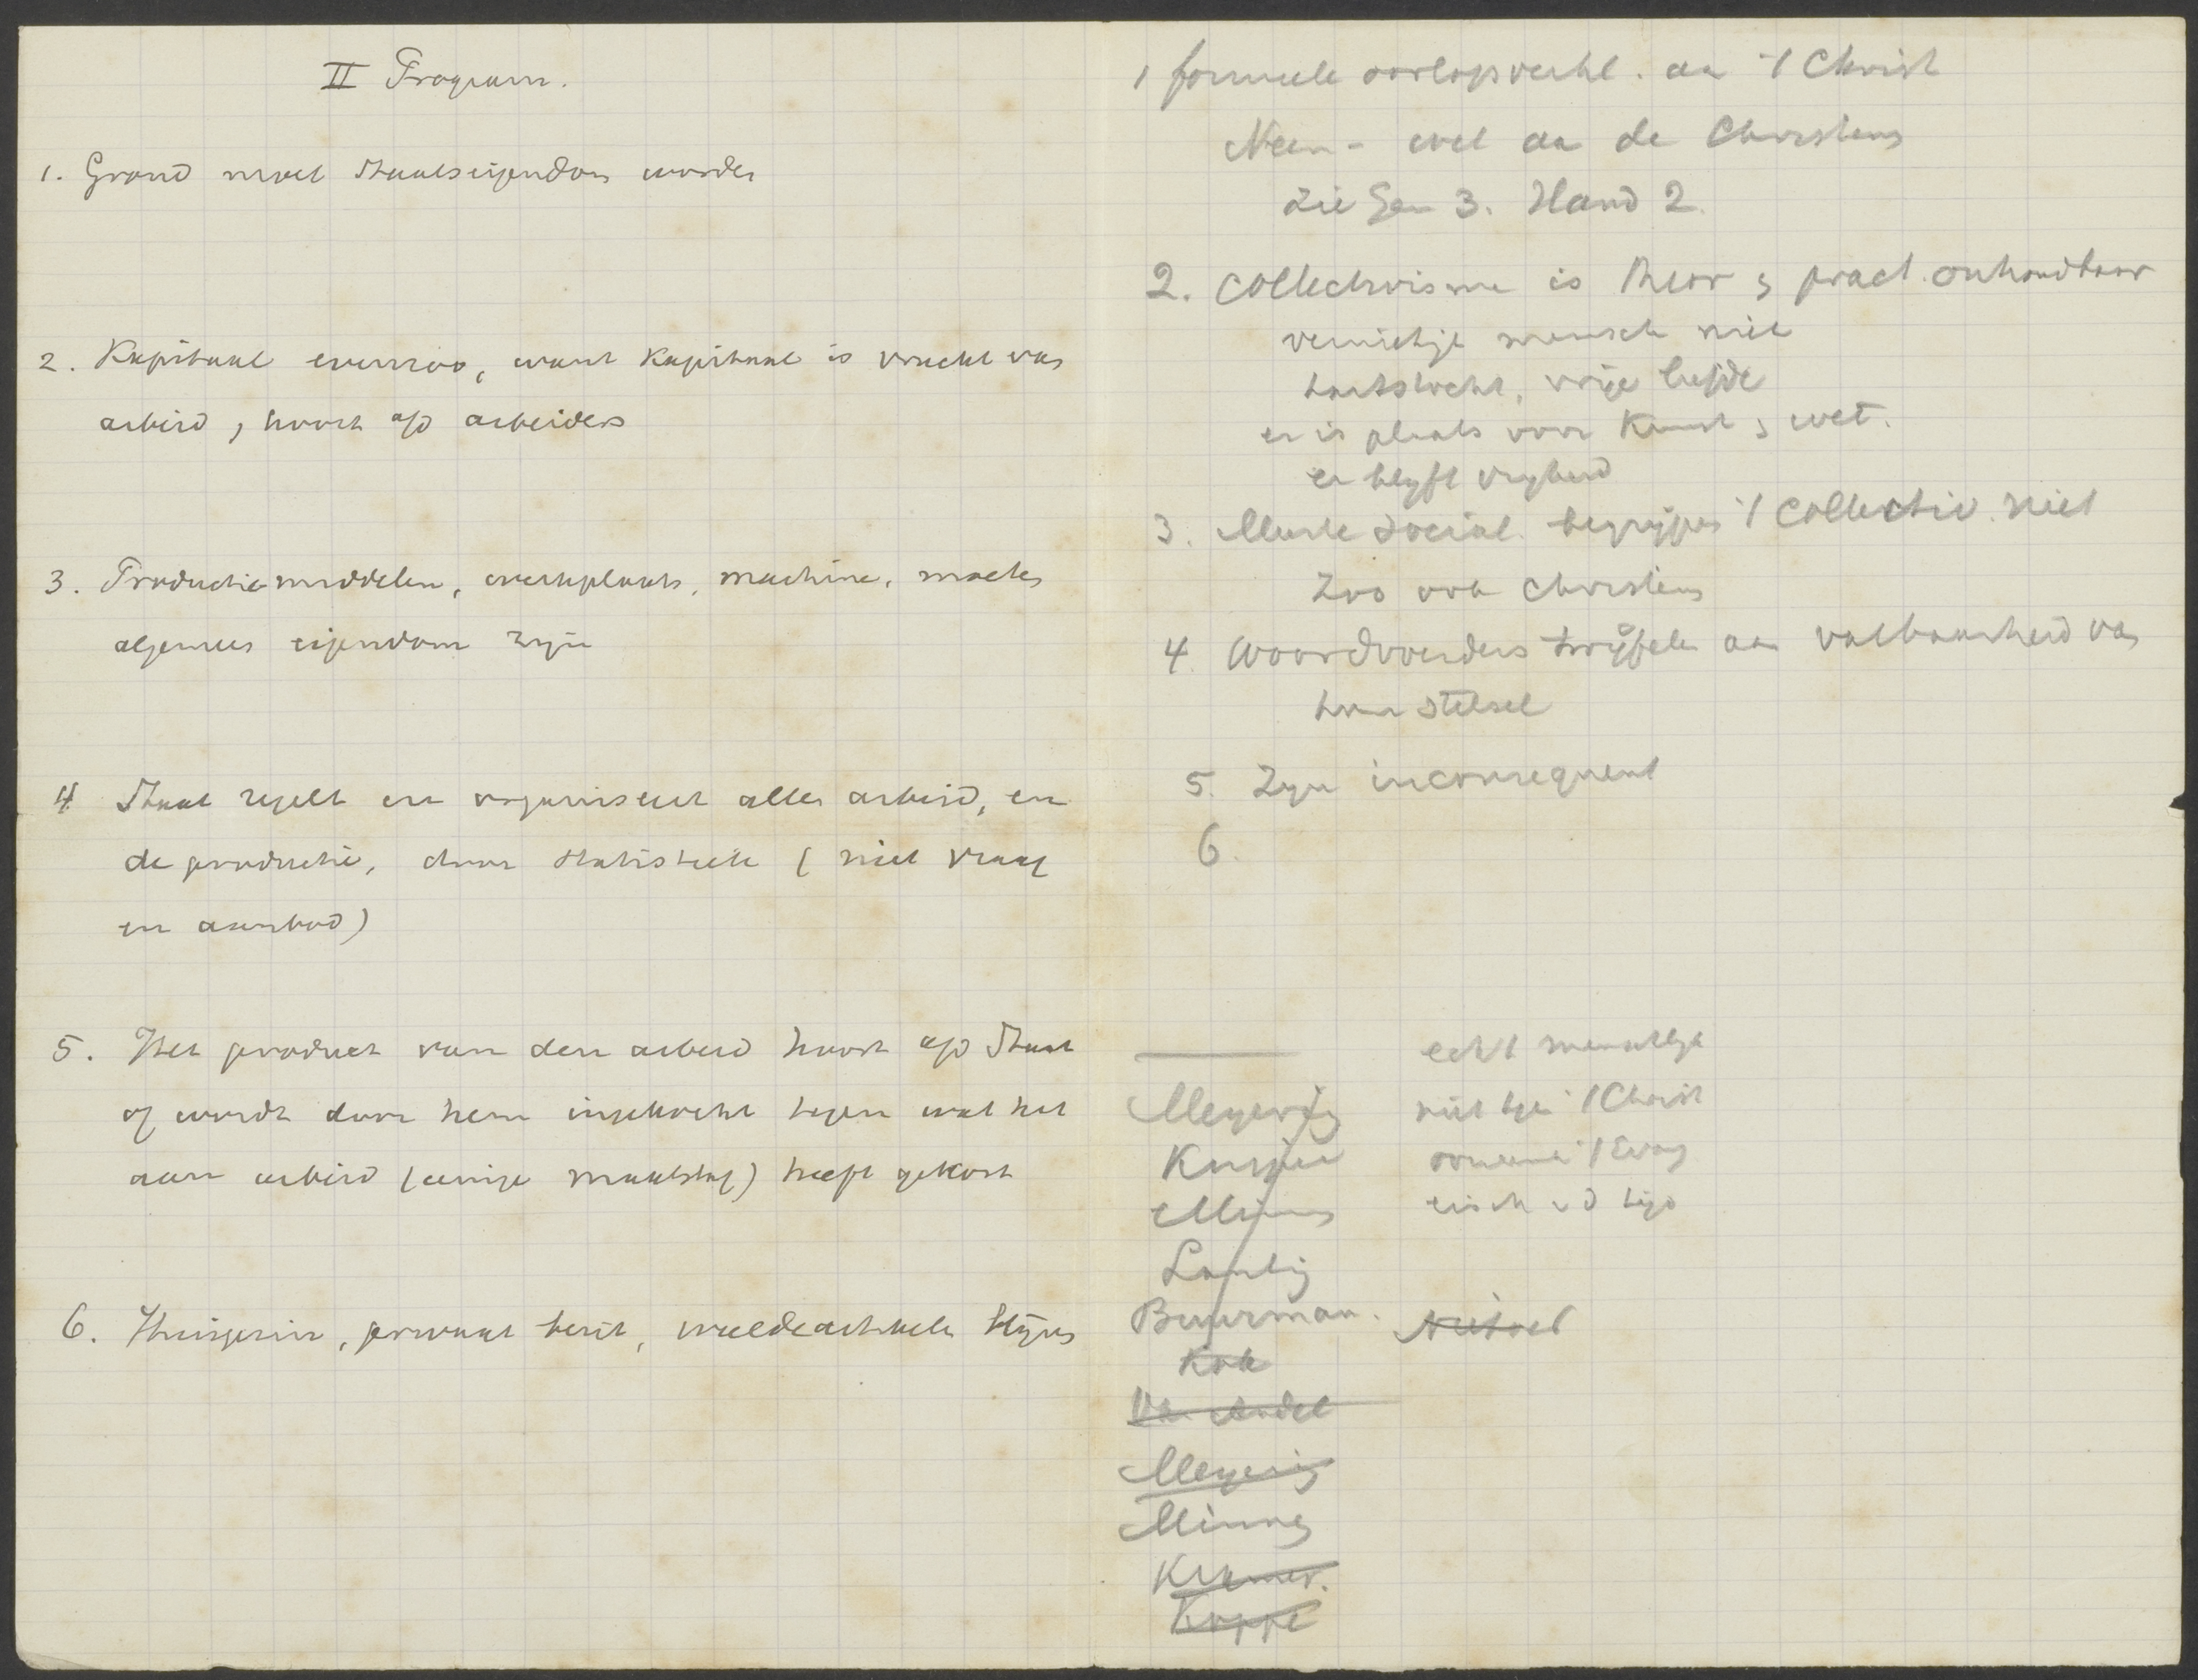 II Program.
1. Grond moet Staatseigendom worden
2. Kapitaal evenzoo, want Kapitaal is vrucht van
arbeid, hoort a/d arbeiders
3. Productie-middelen, werkplaats, machine, moeten
algemeen eigendom zijn
4 Staat regelt en organiseert alle arbeid, en
de productie, door statistiek (niet vraag
en aanbod)
5. Het product van den arbeid hoort a/d Staat
of wordt door hem ingekocht tegen wat het
aan arbeid (eenige maatstaf) heeft gekost
6. Huisgezin, privaat bezit, weeldeartikelen blijven
1 formeele oorlogsverkl. aan 't Christ
Neen - wel aan de Christens
zie Gen 3. Hand 2.
2. Collectivisme is theor & pract. onhoudbaar
vernietigt mensch niet
hartstocht, vrije liefde
er is plaats voor Kunst & wet.
er blijft vrijheid
3. Meeste social. begrijpen 't Collectiv. niet
Zoo ook Christens
4 Woordvoerders twijfelen aan vatbaarheid van
hun stelsel
5. Zijn inconsequent
6.
echt menschelijk
Meyering niet tgn 't Christ
Kuyper 't Evang
eisch v d tijd
Buurman.
Kok
Van Andel
Meyering
Minne
Kramer.
Koppe